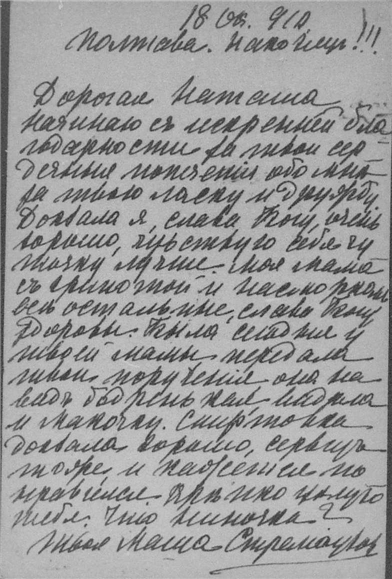 18 Ок. 910.
Полтава. Наконец!!!
Дорогая Наташа
начинаю съ искренней бла
годарности за твои сер
дечныя попеченія обо мнѣ
за твою ласку и дружбу
Доѣхала я, слава Богу, очень
хорошо, чувствую себя чу
точку лучше. Моя мама
съ и насморкомъ
остальные, слава Богу,
здоровы. Была сегодня у
твоей мамы передала
твои порученія она на
видъ бодренькая видѣла
и Макочку.
доѣхала хорошо, сервизъ
тоже и кажется по
нравился крѣпко цѣлую
тебя. Что Ниночка?
Твоя Маша